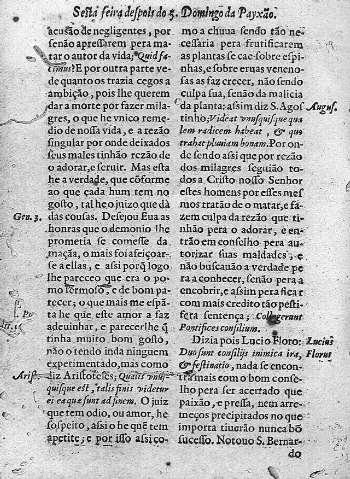 Sesta feira despois do 5. Domingo da Payxão.
acusão de negligentes, por
senão apressarem pera ma
tar o autor da vida; Quid fa
cimus? E por outra parte ve
de quanto os trazia cegos a
ambição, pois lhe querem
dar a morte por fazer mila-
gres, o que he vnico reme
dio de nossa vida, e a rezão
singular por onde deixados
seus males tinhão rezão de
o adorar, e seruir. Mas esta
he a verdade, que cõforme
ao que cada hum tem no
gosto, tal he o juizo que dà
Gen. 3.
das cousas. Desejou Eua as
honras que o demonio lhe
prometia se comesse da
maçãa, o mais foi afeiçoar-
se a ellas, e assi porq̃ logo
lhe pareceo que era o po
mo fermoso, e de bom pa
recer; o que mais me espã
ta he que este amor a faz
adeuinhar, e parecerlhe q̃
tinha muito bom gosto,
não o tendo inda ninguem
experimentado, mas como
Arist.
diz Aristoteles; Qualis vnus
quisque est, talis finis videtur
ei ea quæ sunt ad finem. O juiz
que tem odio, ou amor, he
sospeito, assi o he quē tem
apetite; e por isso assi co-
mo a chuua sendo tão ne-
cessaria pera frutificarem
as plantas se cae sobre espi-
nhas, e sobre eruas veneno-
sas as faz crecer, não sendo
culpa sua, senão da malicia
da planta: assim diz S. Agos
Augus.
tinho; Videat vnusquisque qua
lem radicem habeat, & quo
trahat pluuiam bonam. Por on-
de sendo assi que por rezão
dos milagres seguião to-
dos a Cristo nosso Senhor
estes homens por esses mes
mos tratão de o matar, e fa-
zem culpa da rezão que ti-
nhão pera o adorar, e en-
trão em conselho pera au-
torizar suas maldades, e
não buscauão a verdade pe
ra a conhecer, senão pera a
encobrir, e assim pera fica r
com mais credito tão pesti-
fera sentença; Collegerunt
Pontifices consilium.
Dizia pois Lucio Floro:
Lucius
Florus
Duo sunt consilijs inimica ira,
& festinatio, nada se encon-
tra mais com o bom conse-
lho pera ser acertado que
paixão, e pressa, nem arre-
meços precipitados no que
importa tiuerão nunca bõ
sucesso. Notouo S. Bernar-
do